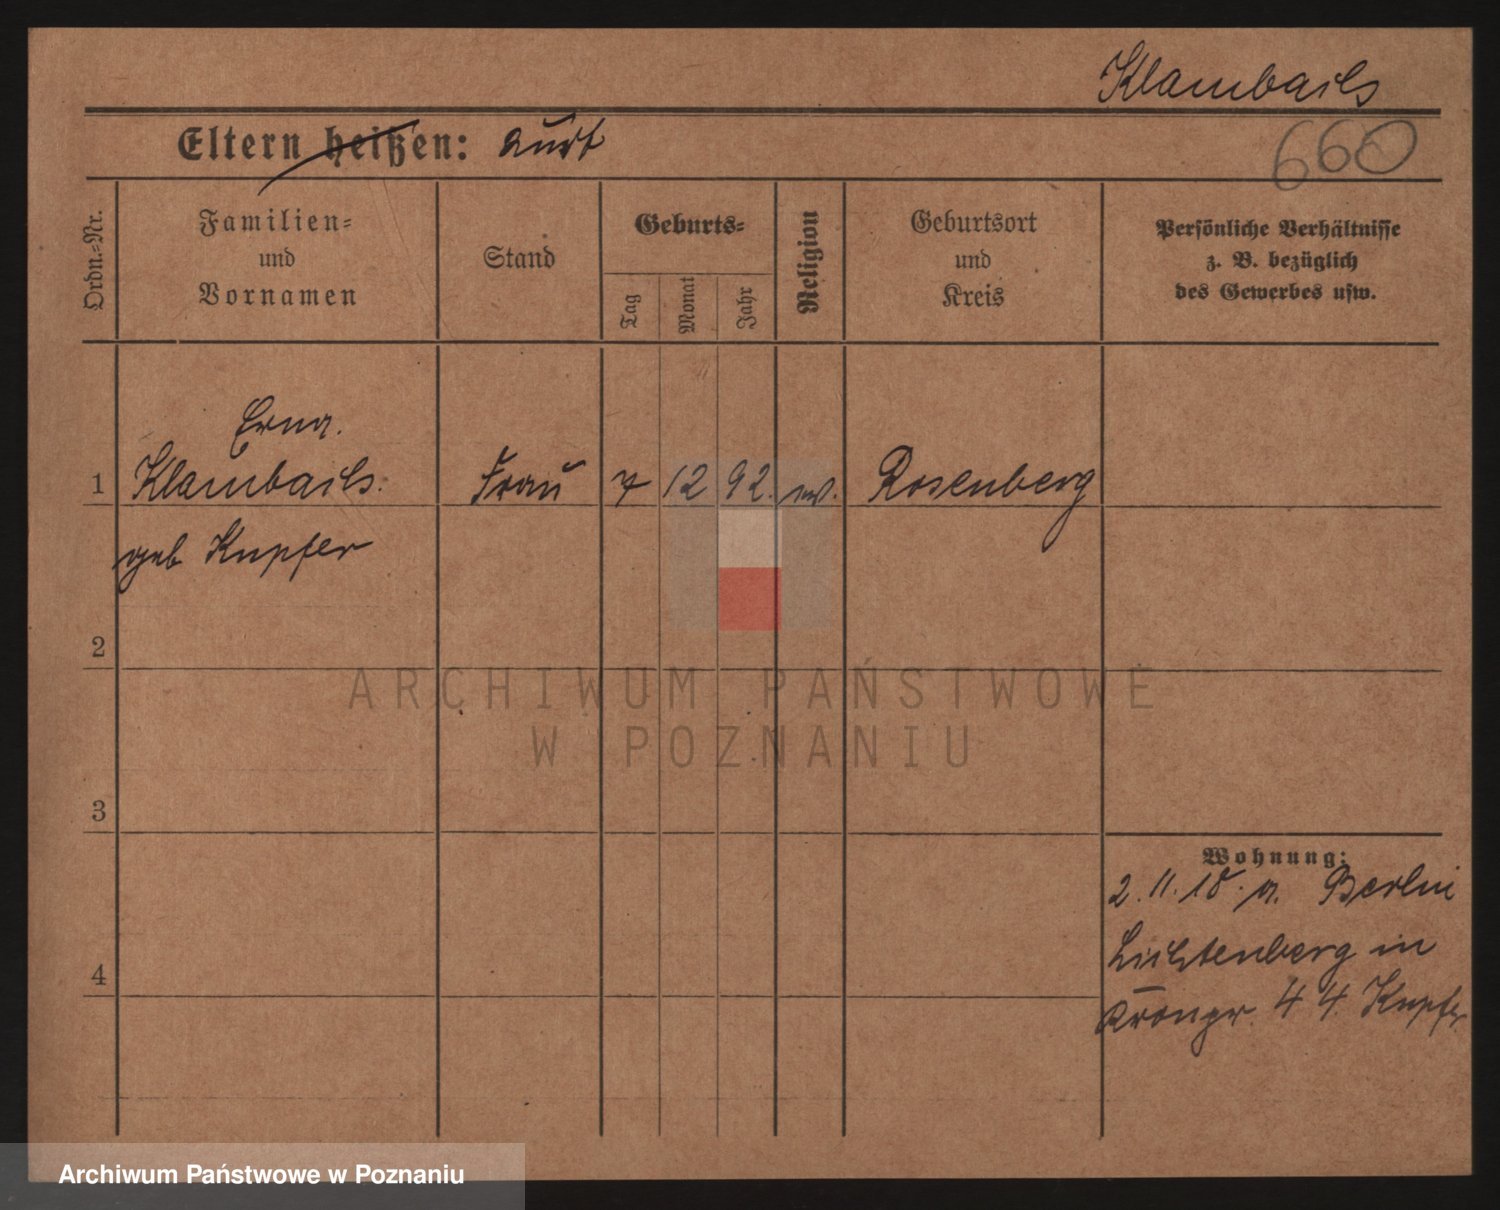 Klambails
Eltern heißen: Kurt
660
Ordn.-Nr.
Familien-
und
Vornamen
Stand
Geburts-
Tag
Monat
Jahr
Religion
Geburtsort
und
Kreis
Persönliche Verhältnisse
z. B. bezüglich
des Gewerbes usw.
Erna.
1 Klambails. Frau 7 12 92. Rosenberg
geb Kupfer
2
3
4
Wohnung:
2. 11. 18. a. Berlin
Lichtenberg in
Kronpr. 44. Kupfer
ARCHIWUM PAŃSTWOWE
W POZNANIU
Archiwum Państwowe w Poznaniu